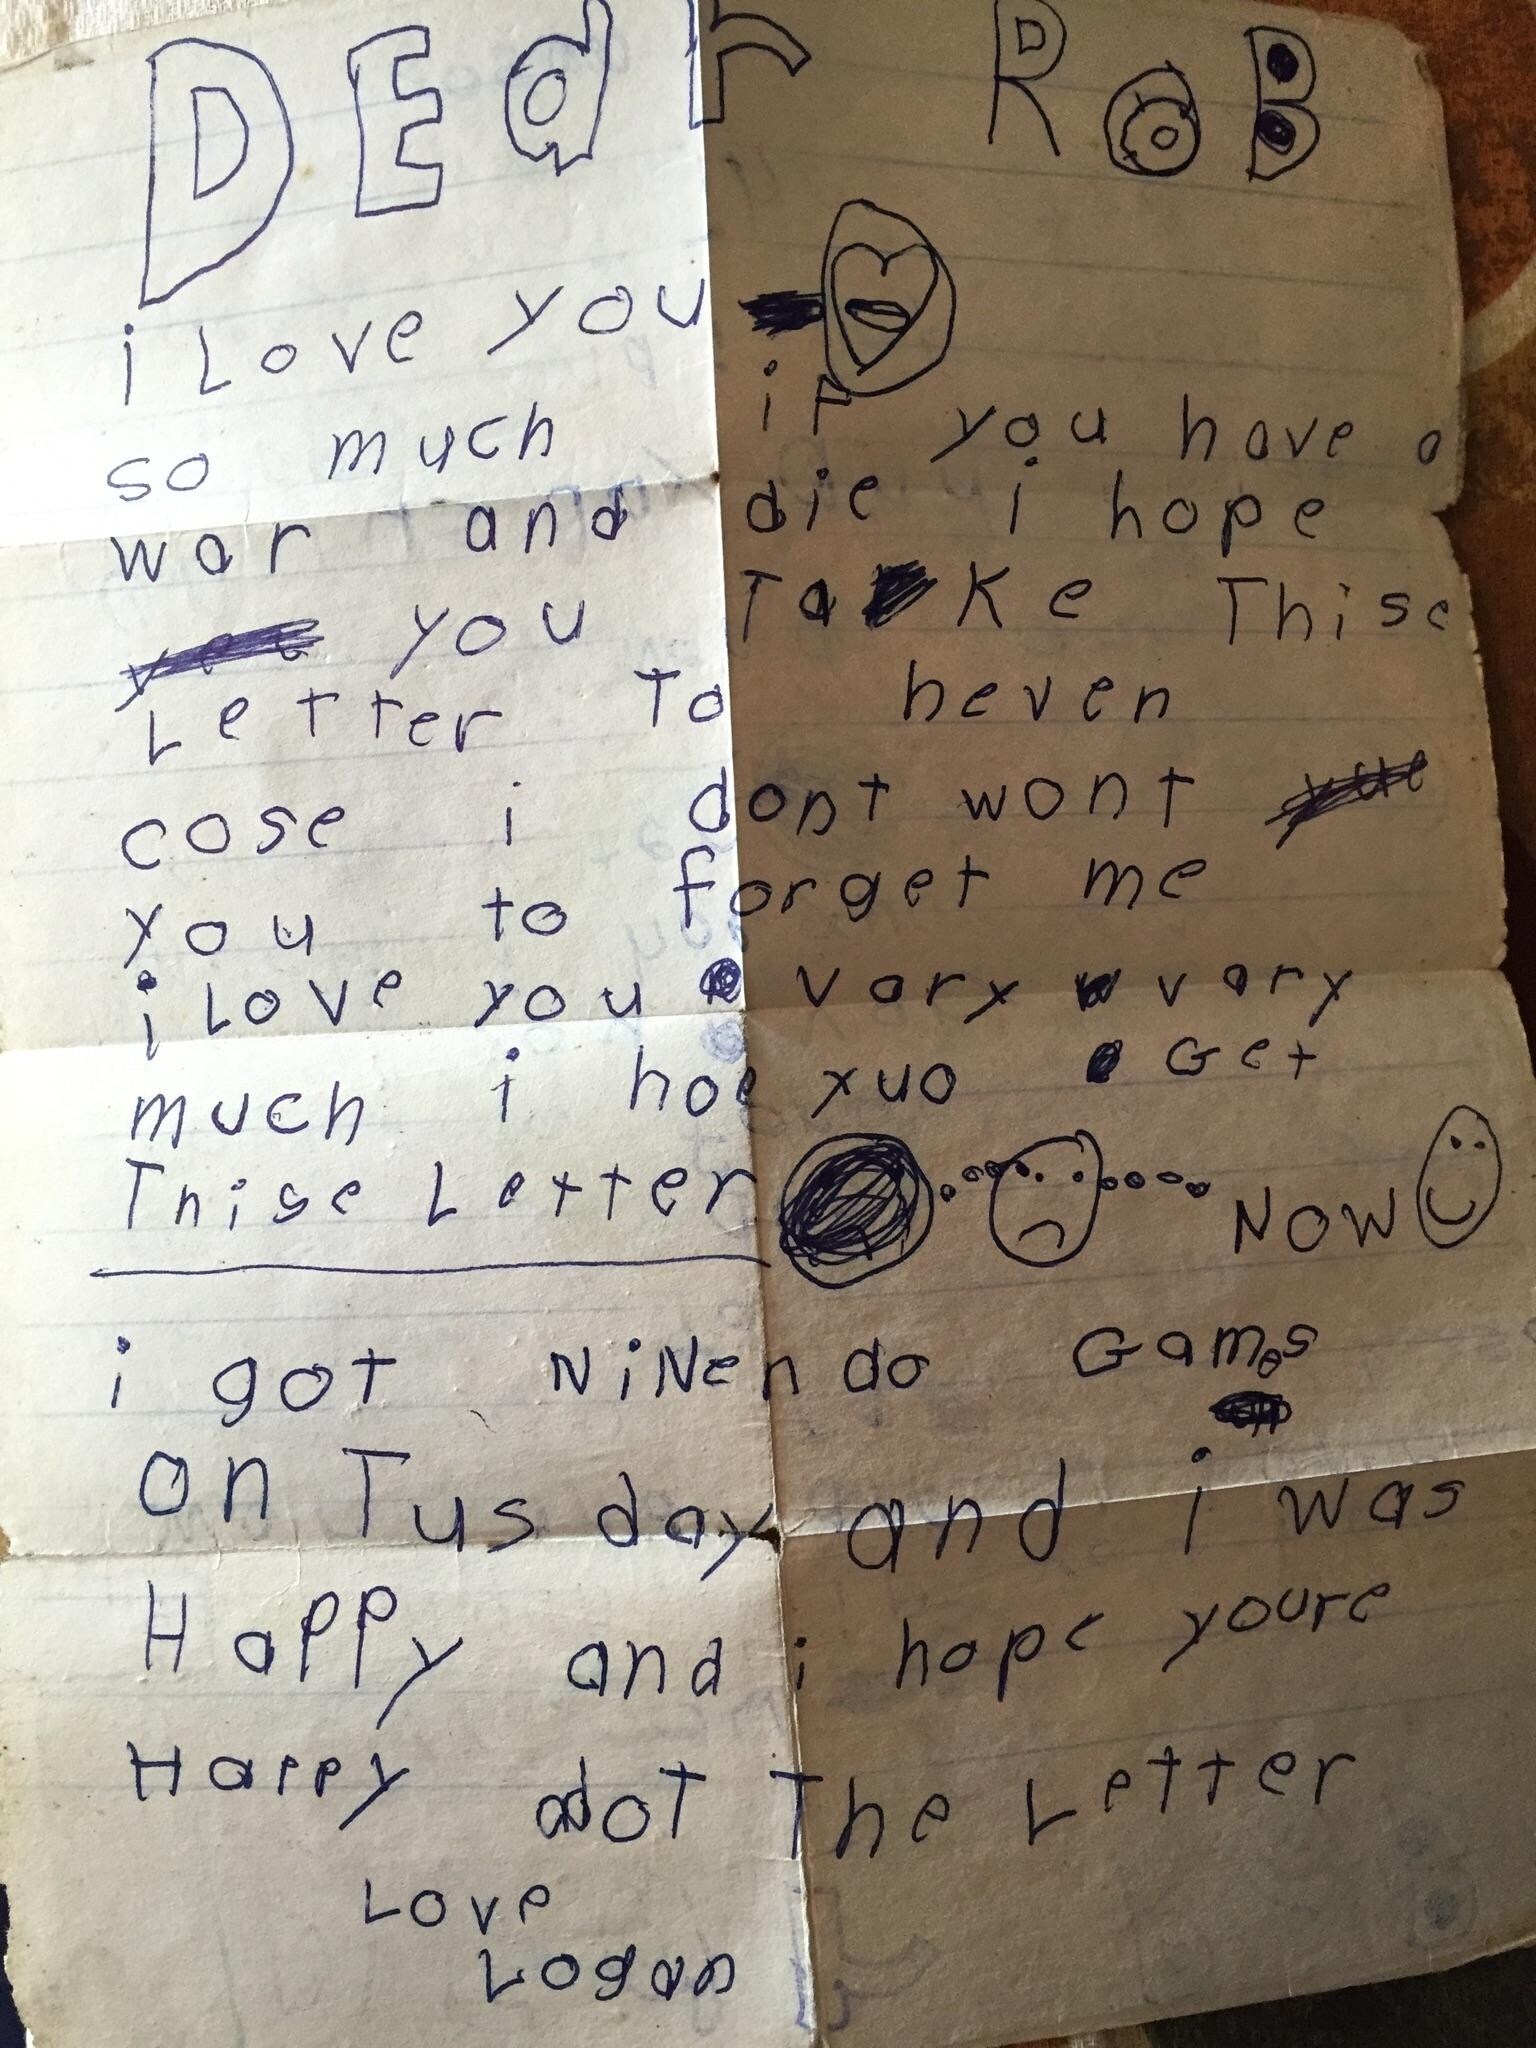 DEar RoB
i Love you
so much if you have a
war and die i hope
you Take Thise
Letter To heven
cose i dont wont
you to forget me
i Love you vary vary
much i hoe yuo Get
Thise Letter NOW
i got NiNendo Games
on Tusday and i was
Happy and i hope youre
Happy adot The Letter
Love
Logan